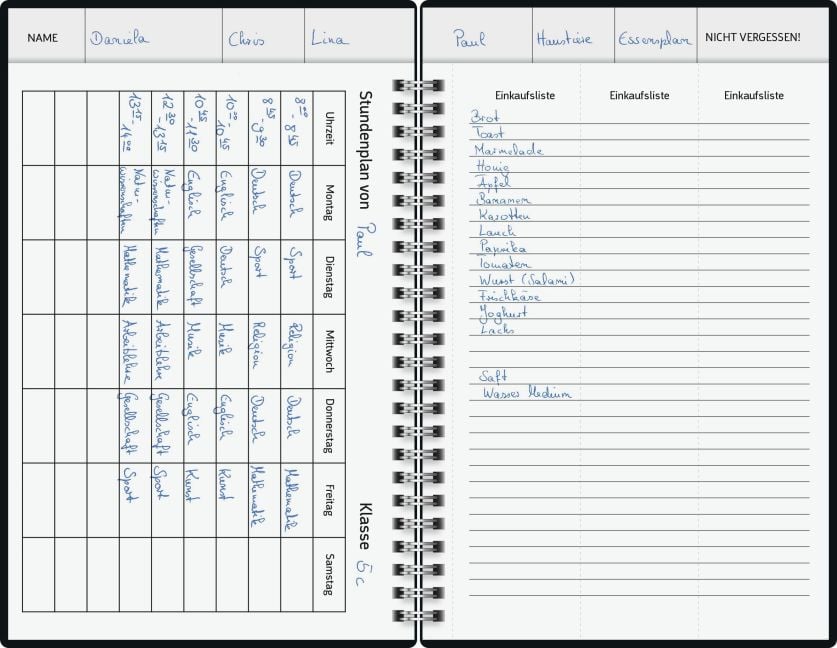 NAME Daniela Chris Lina Paul Haustiere Essensplan NICHT VERGESSEN!
Stundenplan von Paul Klasse 5c
Uhrzeit Montag Dienstag Mittwoch Donnerstag Freitag Samstag
8 00 - 8 45 Deutsch Sport Religion Deutsch Mathematik
8 45 - 9 30 Deutsch Sport Religion Deutsch Mathematik
10 00 - 10 45 Englisch Deutsch Musik Englisch Kunst
10 45 - 11 30 Englisch Gesellschaft Musik Englisch Kunst
12 30 - 13 15 Natur-wissenschaften Mathematik Arbeitslehre Gesellschaft Sport
13 15 - 14 00 Natur-wissenschaften Mathematik Arbeitslehre Gesellschaft Sport
Einkaufsliste Einkaufsliste Einkaufsliste
Brot
Toast
Marmelade
Honig
Äpfel
Bananen
Karotten
Lauch
Paprika
Tomaten
Wurst (Salami)
Frischkäse
Joghurt
Lachs
Saft
Wasser Medium